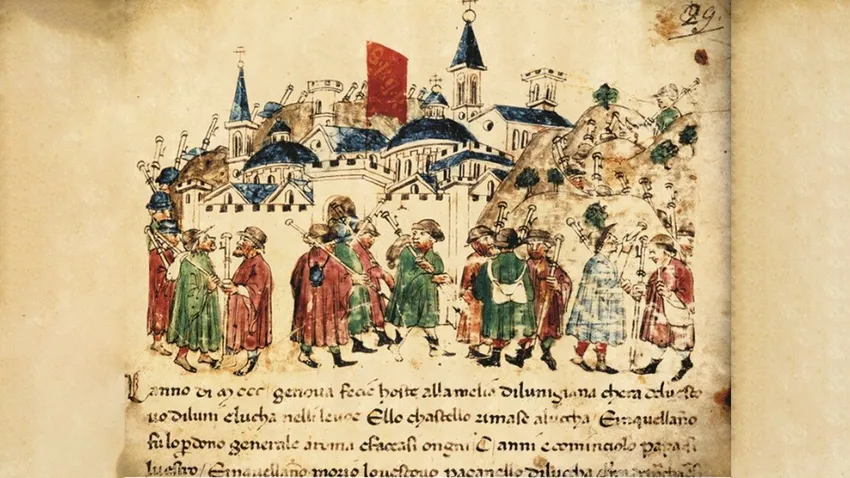 29.
Lanno di MCCC genova fecie hoste allamelia dilunigiana chera delvesco
vo diluni elucha nelli levoe Ello chastello rimase alucha / Einquellano
fu loperdono generale aroma efaccasi ongni C anni ecominciolo papa si
lvestro / Einquellano morio lovescovo paganello diluccha